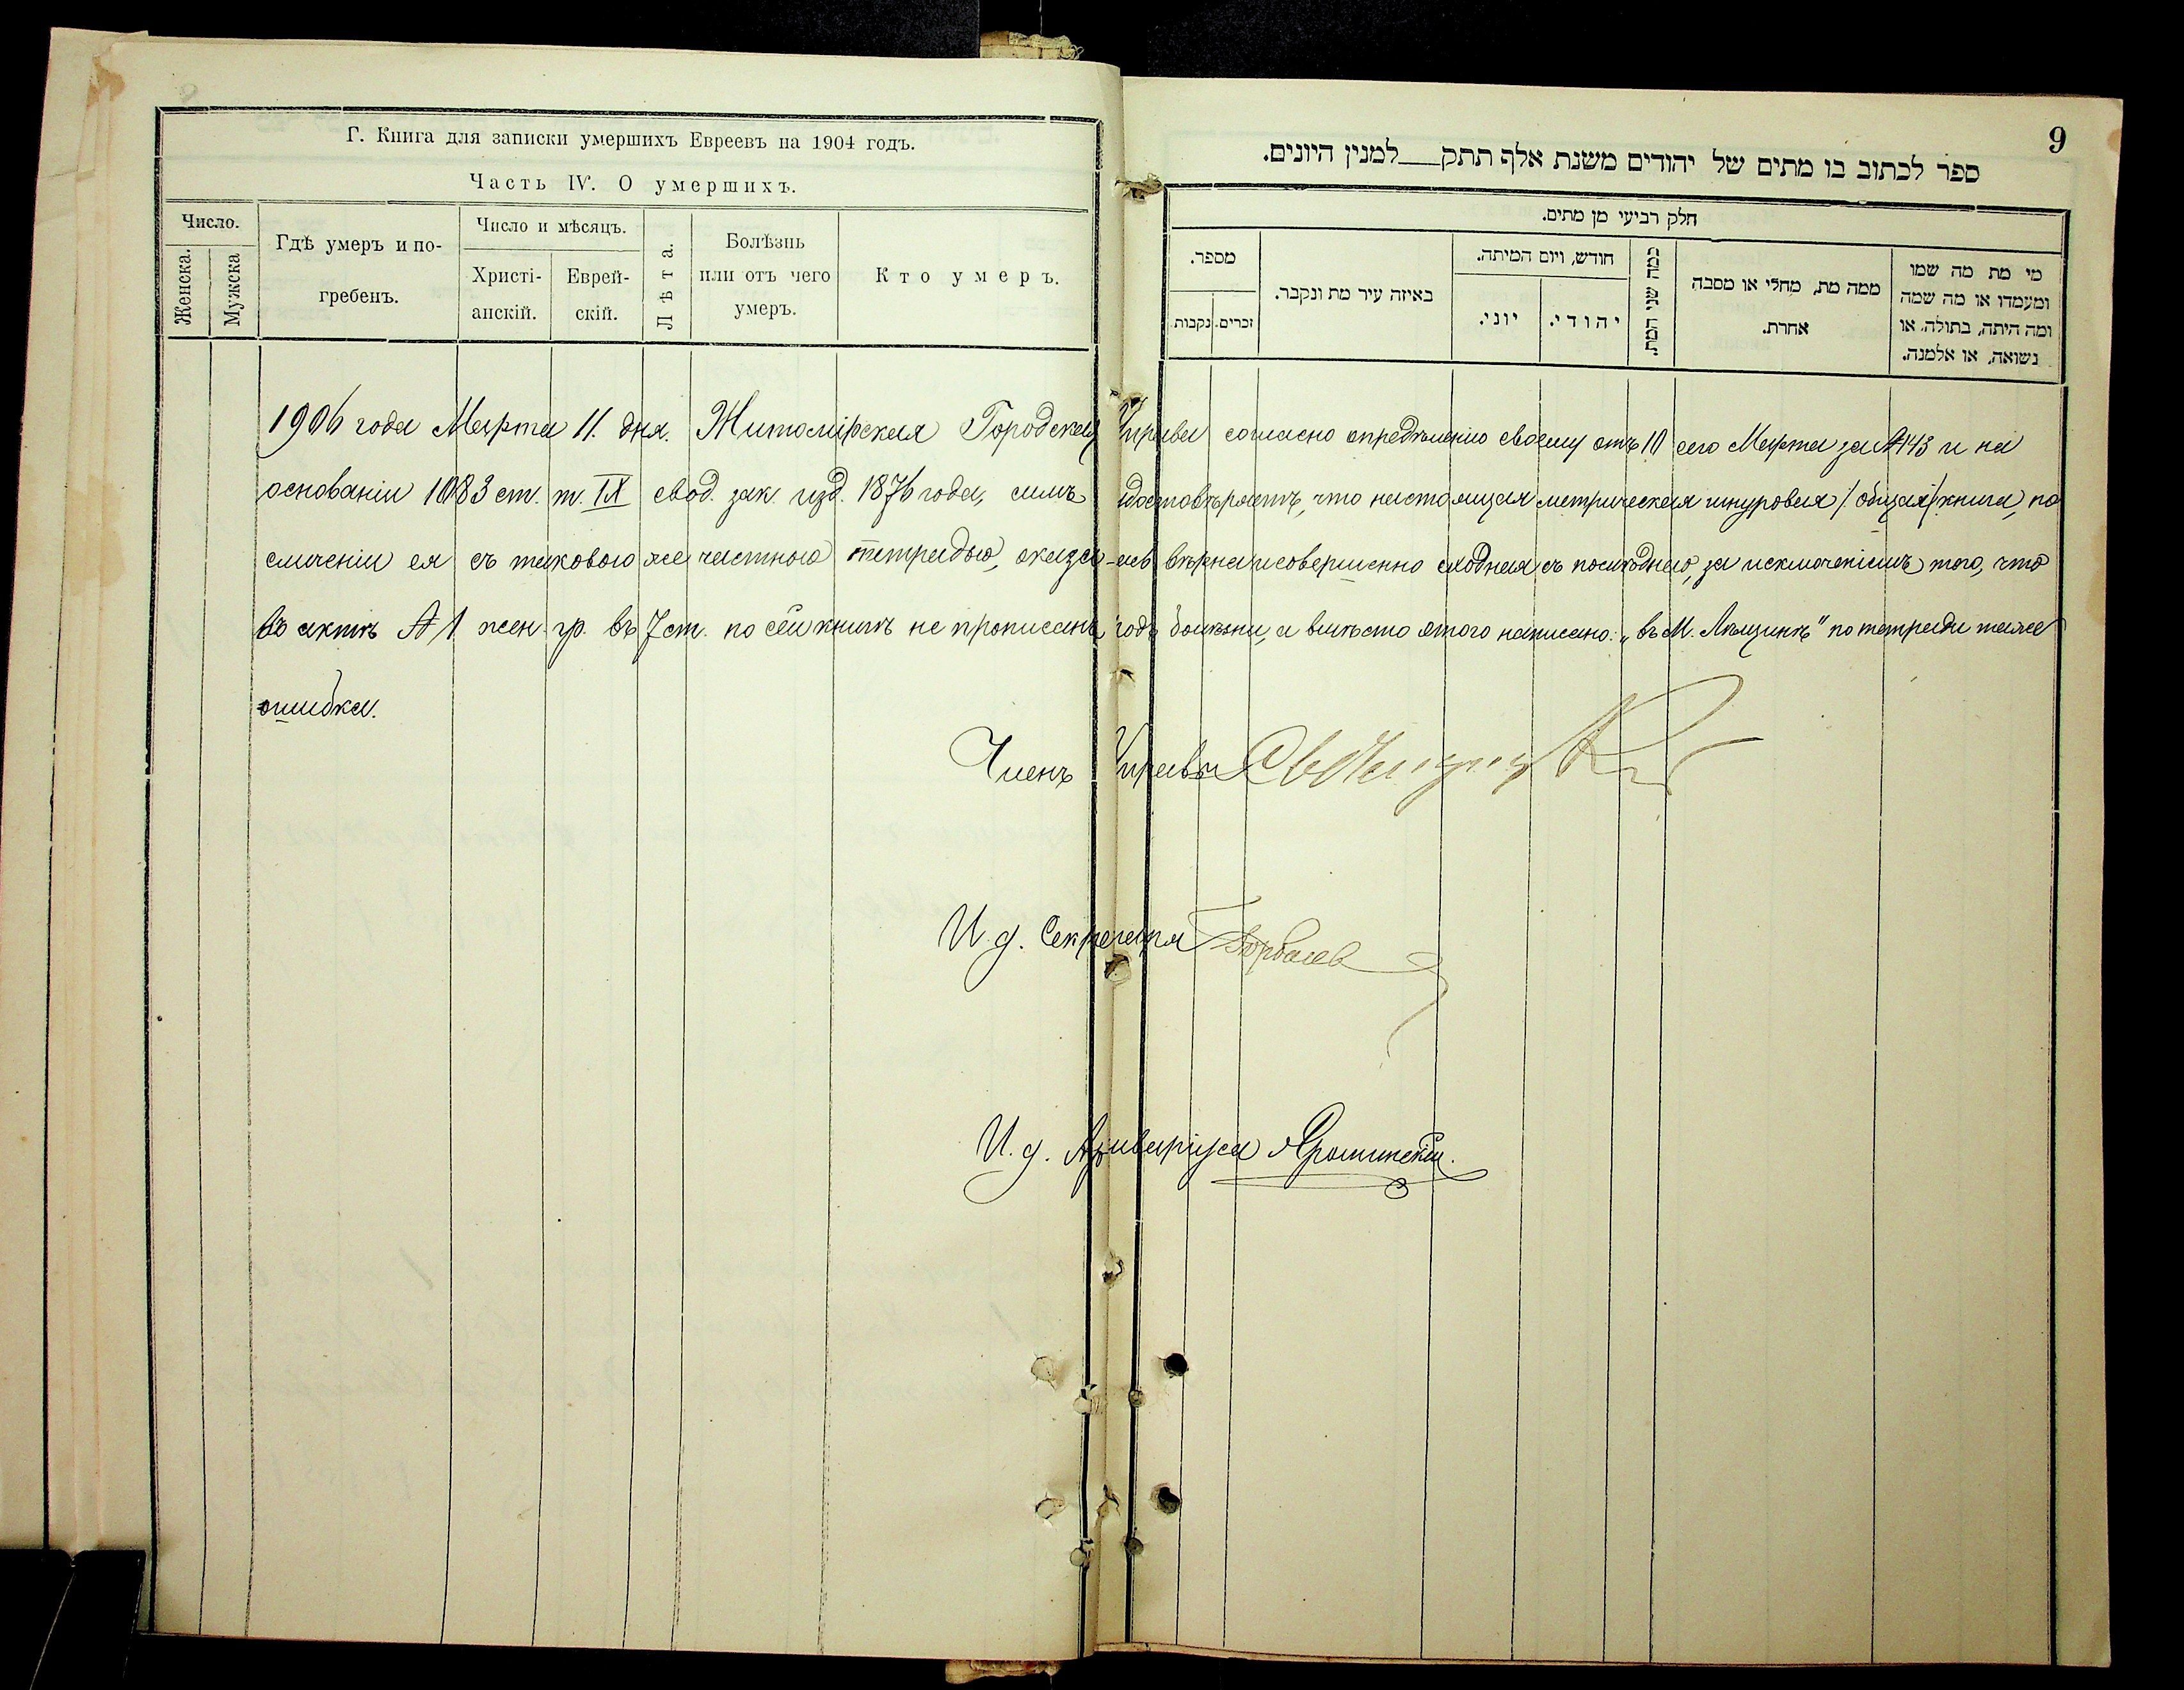 Г. Книга для записки умершихъ Евреевъ на 1904 годъ.
Часть IV. О умершихъ.
Число.
Женска.
Мужска
Гдѣ умеръ и по-
гребенъ.
Число и мѣсяцъ.
Христі-
анскій.
Еврей-
скій.
Лѣта.
Болѣзнь
или отъ чего
умеръ.
Кто умеръ.
9
ספר לכתוב בו מתים של יהודים משנת אלף תתק למנין היונים.
חלק רביעי מן מתים.
מספר.
נקבות
זכרים.
באיזה עיר מת ונקבר.
חודש, ויום המיתה.
יוני.
יהודי.
כמה שני המת.
ממה מת, מחלי או מסבה
אחרת.
מי מת מה שמו
ומעמדו או מה שמה
ומה היתה, בתולה, או
נשואה, או אלמנה.
1906 года Марта 11. дня. Житомірская Городская Управа согласно опредѣленію своему отъ 10 сего Марта за № 143 и на
основаніи 1083 ст. т. IX свод. зак. изд. 1876 года, симъ удостовѣряетъ, что настоящая метрическая шнуровая /общая/ книга, по
сличеніи ея съ таковою же частною тетрадью, оказа-лась вѣрна и совершенно сходная съ послѣднею, за исключеніемъ того, что
въ актѣ № 1 жен. гр. въ 7 ст. по сей книгѣ не прописанъ родъ болѣзни, а вмѣсто этого написано: „въ М. Лѣщинѣ" по тетради таже
ошибка.
Членъ Управы
И. д. Секретаря
И. д. Архиваріуса